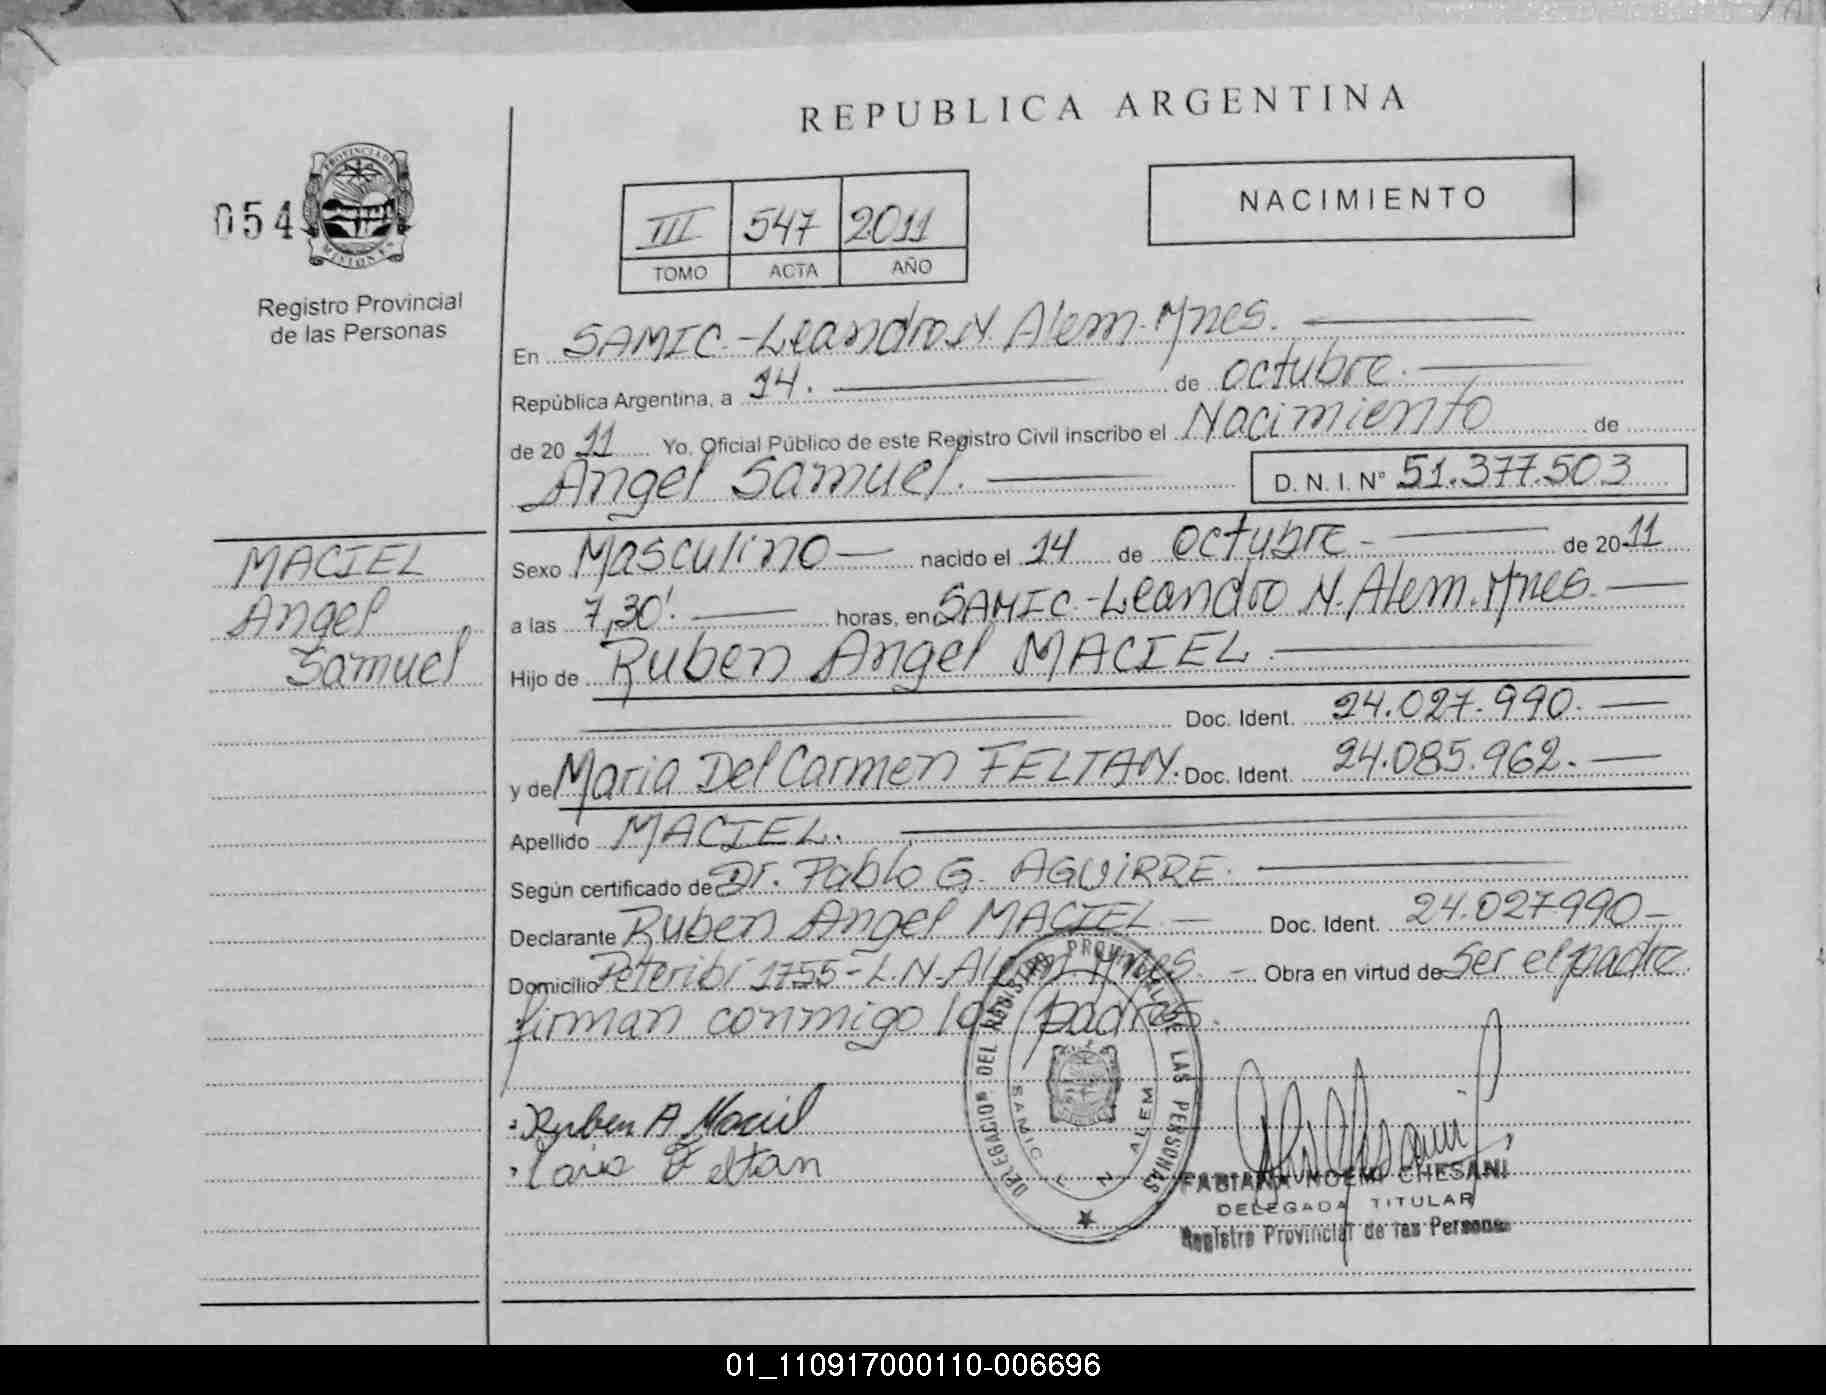 REPUBLICA ARGENTINA
054
PROVINCIA DE
MISIONES
Registro Provincial
de las Personas
III 547 2011
TOMO ACTA AÑO
NACIMIENTO
En SAMIC.-Leandro N Alem.Mnes.
República Argentina, a 14. de octubre.
de 20 11 Yo, Oficial Público de este Registro Civil inscribo el Nacimiento de
Angel Samuel. D. N. I. N° 51.377.503
MACIEL
Angel
Samuel
Sexo Masculino nacido el 14 de octubre - de 20 11
a las 7,30'. horas, en SAMIC.-Leandro N. Alem.Mnes.
Hijo de Ruben Angel MACIEL.
Doc. Ident. 24.027.990.
y de Maria Del Carmen FELTAN. Doc. Ident. 24.085.962.
Apellido MACIEL.
Según certificado de Dr. Pablo G. AGUIRRE.
Declarante Ruben Angel MACIEL Doc. Ident. 24.027990
Domicilio Peteribí 1755-L.N.Alem Mnes. Obra en virtud de Ser el padre
firman conmigo los padres.
DELEGACION DEL REGISTRO PROVINCIAL DE LAS PERSONAS
SAMIC L N ALEM
Ruben A Maciel
Feltan
FABIANA NOEMI CHESANI
DELEGADA TITULAR
Registro Provincial de las Personas
01_110917000110-006696